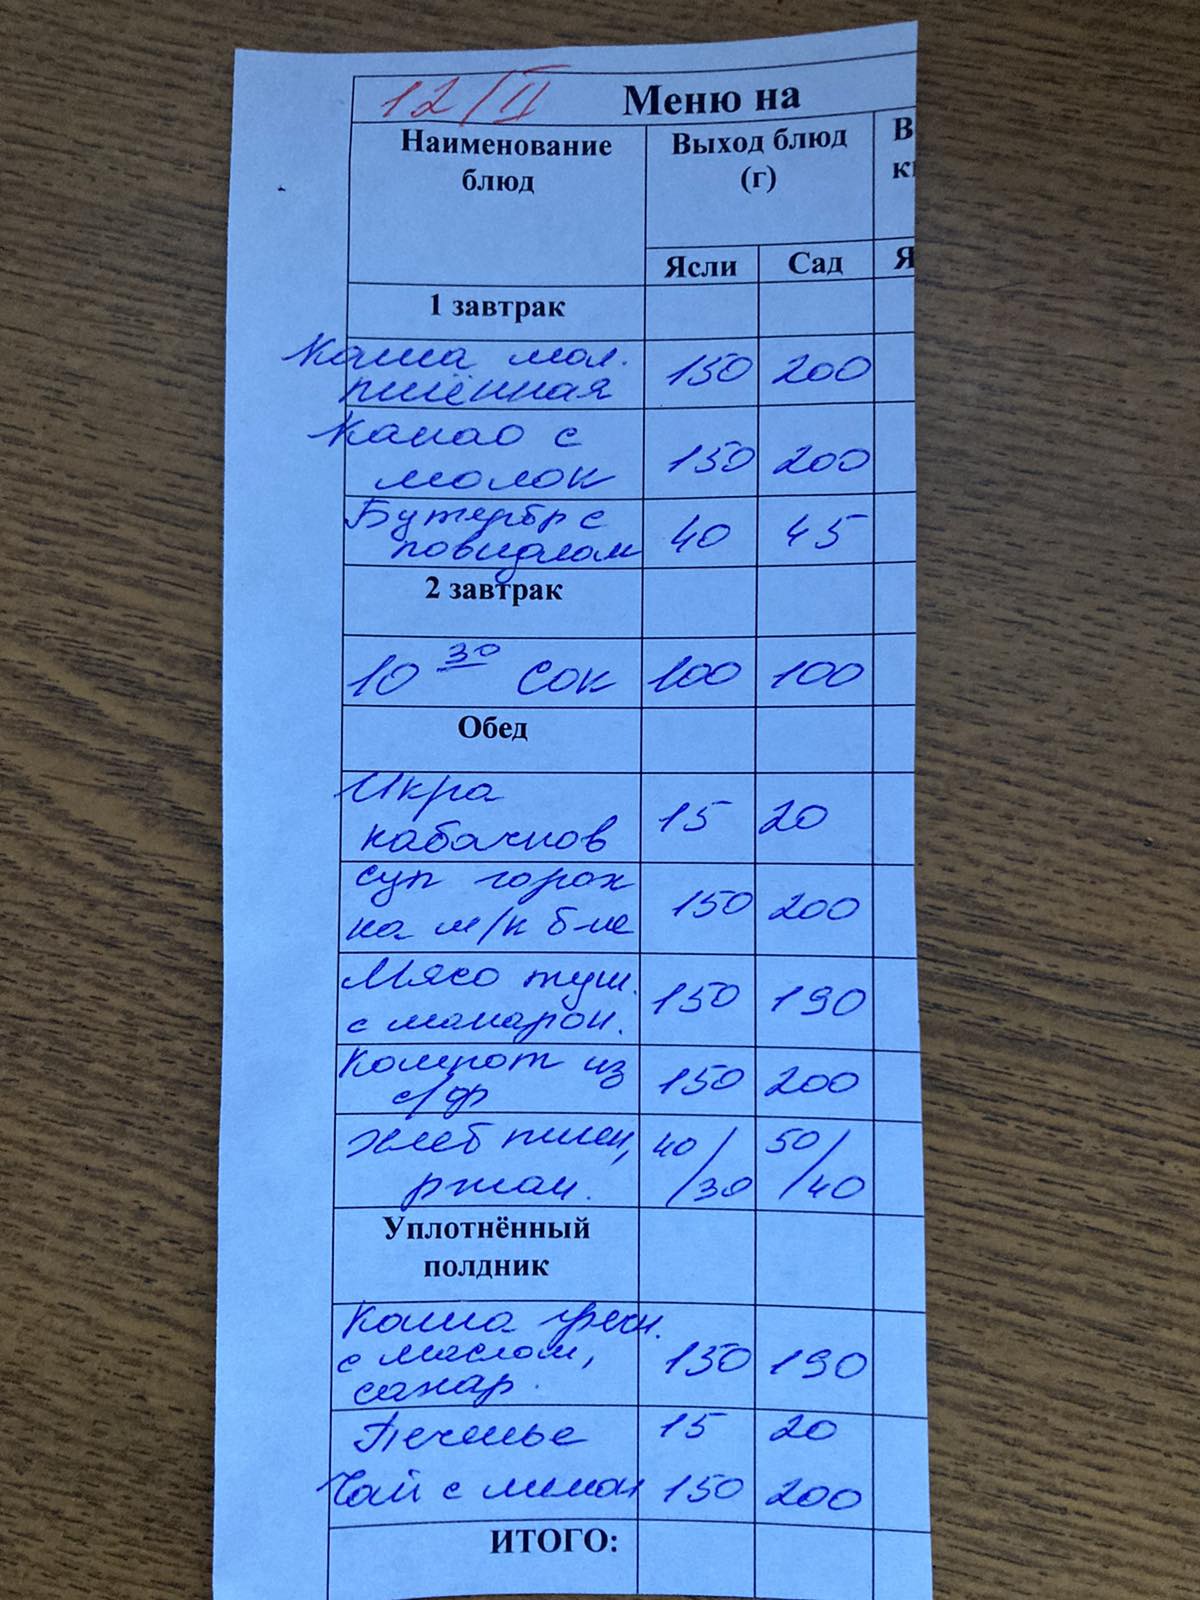 12/II Меню на
Наименование Выход блюд В
блюд (г) к
Ясли Сад Я
1 завтрак
Каша мол.
пшённая 150 200
Какао с
молок 150 200
Бутербр с
повидлом 40 45
2 завтрак
10 30 сок 100 100
Обед
Икра
кабачков 15 20
суп горох
на м/к б-не 150 200
Мясо туш.
с макарон. 150 190
Компот из
с/ф 150 200
Хлеб пшен, 40/30 50/40
ржан.
Уплотнённый
полдник
Каша гречн.
с маслом, 150 190
сахар.
Печенье 15 20
Чай с лимон 150 200
ИТОГО: